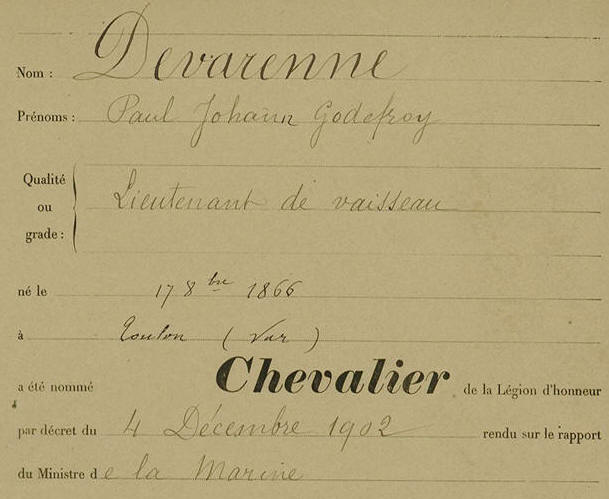 Nom : Devarenne
Prénoms : Paul Johann Godefroy
Qualité
ou
grade : Lieutenant de vaisseau
né le 17 8bre 1866
à Toulon (Var)
a été nommé Chevalier de la Légion d'honneur
par décret du 4 Décembre 1902 rendu sur le rapport
du Ministre de la Marine